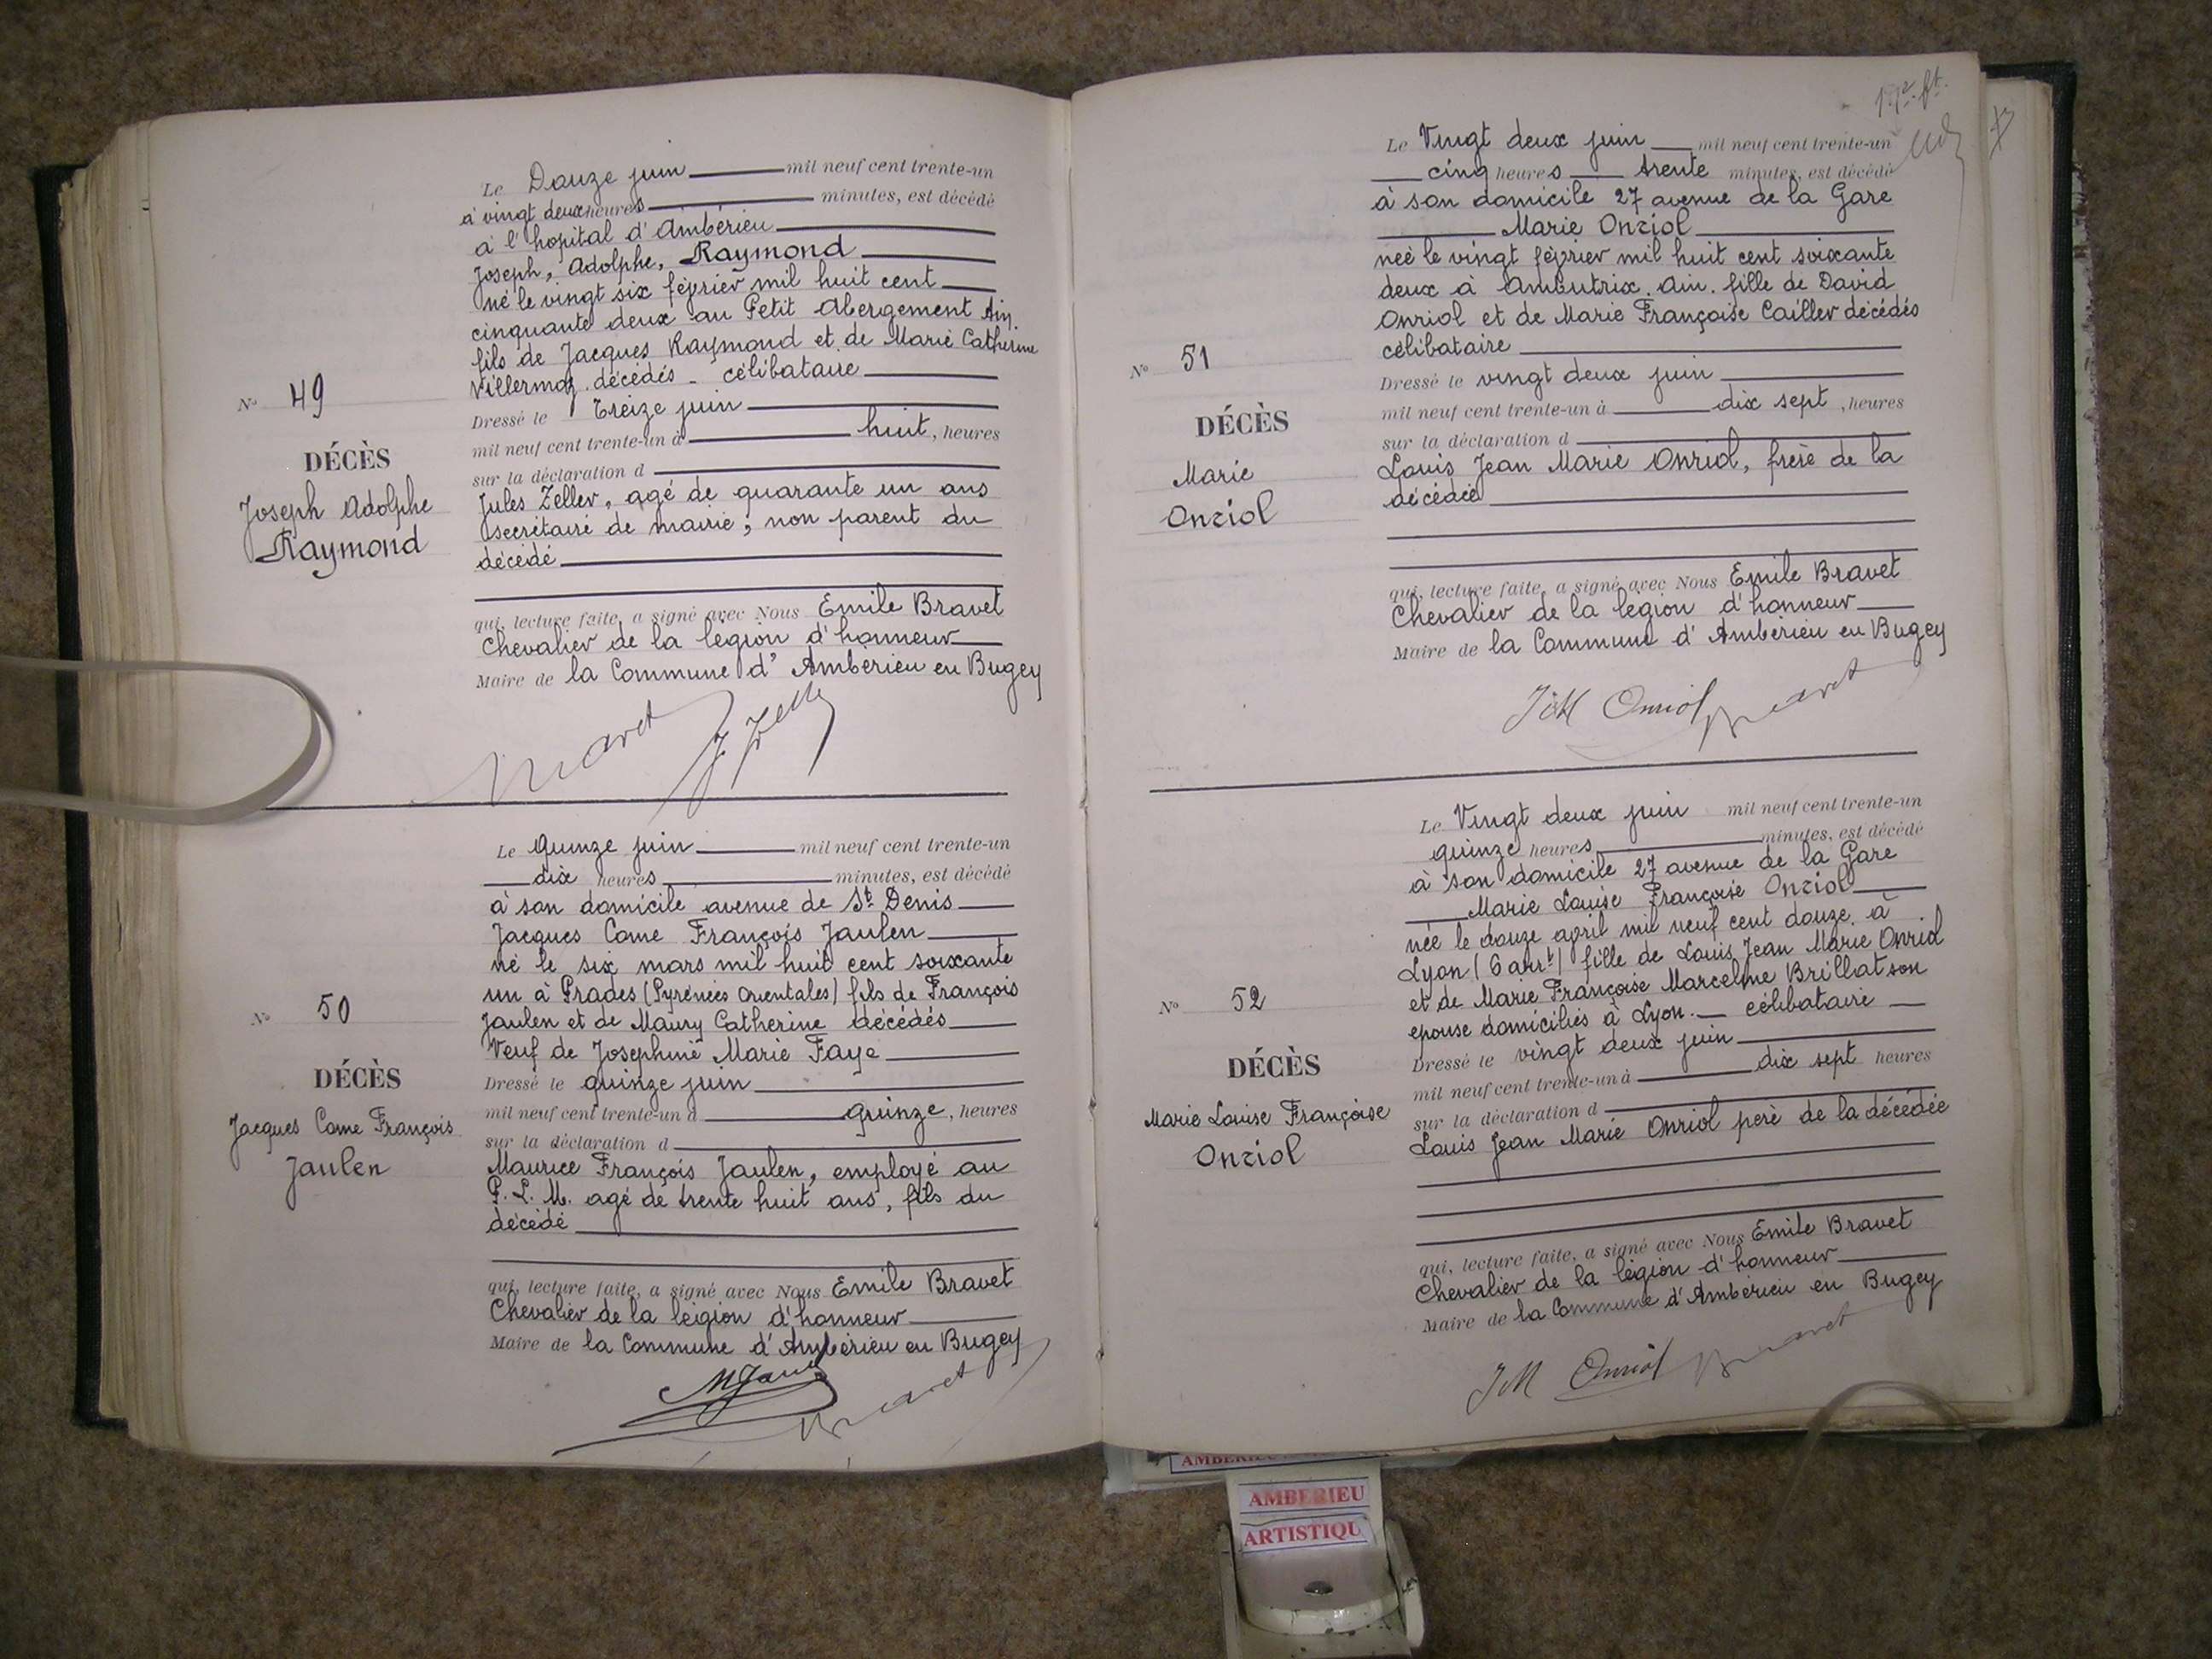 Le Douze juin mil neuf cent trente-un
à vingt deux heures minutes, est décédé
à l'hopital d'Ambérieu
Joseph, Adolphe, Raymond
né le vingt six février mil huit cent
cinquante deux au Petit Abergement Ain.
fils de Jacques Raymond et de Marie Catherine
Villermoz décédés - célibataire
Nº 49
Dressé le Treize juin
mil neuf cent trente-un à huit, heures
DÉCÈS
sur la déclaration d
Joseph Adolphe
Raymond
Jules Zeller, agé de quarante un ans
secrétaire de mairie, non parent du
décédé
qui, lecture faite, a signé avec Nous Emile Bravet
Chevalier de la légion d'honneur
Maire de la Commune d'Ambérieu en Bugey
Bravet J Zeller
Le quinze juin mil neuf cent trente-un
dix heures minutes, est décédé
à son domicile avenue de St Denis
Jacques Come François Jaulen
né le six mars mil huit cent soixante
un à Prades (Pyrénées Orientales) fils de François
Jaulen et de Maury Catherine décédés
Veuf de Josephine Marie Faye
Nº 50
Dressé le quinze juin
mil neuf cent trente-un à quinze, heures
DÉCÈS
sur la déclaration d
Jacques Come François
Jaulen
Maurice François Jaulen, employé au
P. L. M. agé de trente huit ans, fils du
décédé
qui, lecture faite, a signé avec Nous Emile Bravet
Chevalier de la légion d'honneur
Maire de la Commune d'Ambérieu en Bugey
Bravet
Le Vingt deux juin mil neuf cent trente-un
cinq heures trente minutes, est décédé
à son domicile 27 avenue de la Gare
Marie Onriol
née le vingt février mil huit cent soixante
deux à Ambutrix. Ain. fille de David
Onriol et de Marie Françoise Cailler décédés
célibataire
Nº 51
Dressé le vingt deux juin
mil neuf cent trente-un à dix sept, heures
DÉCÈS
sur la déclaration d
Marie
Onriol
Louis Jean Marie Onriol, frère de la
décédée
qui, lecture faite, a signé avec Nous Emile Bravet
Chevalier de la légion d'honneur
Maire de la Commune d'Ambérieu en Bugey
JM Onriol Bravet
Le Vingt deux juin mil neuf cent trente-un
quinze heures minutes, est décédé
à son domicile 27 avenue de la Gare
Marie Louise Françoise Onriol
née le douze april mil neuf cent douze à
Lyon (6 arrt) fille de Louis Jean Marie Onriol
et de Marie Françoise Marceline Brillat son
epouse domiciliés à Lyon. - célibataire
Nº 52
Dressé le vingt deux juin
mil neuf cent trente-un à dix sept heures
DÉCÈS
sur la déclaration d
Marie Louise Françoise
Onriol
Louis Jean Marie Onriol père de la décédée
qui, lecture faite, a signé avec Nous Emile Bravet
Chevalier de la légion d'honneur
Maire de la Commune d'Ambérieu en Bugey
JM Onriol Bravet
AMBERIEU
ARTISTIQU